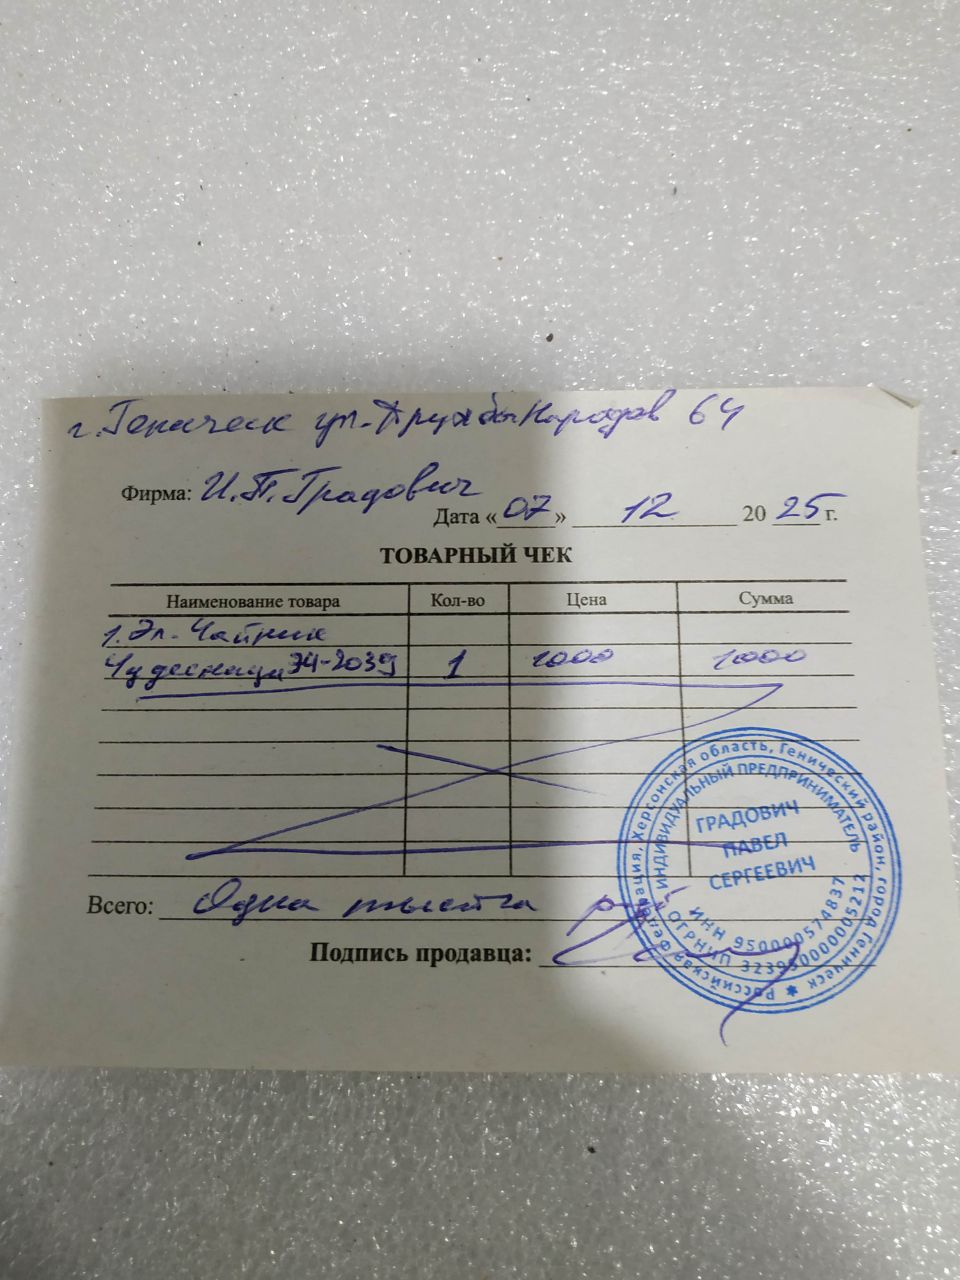 г. Геническ ул. Дружбы Народов 64
Фирма: И.П. Градович
Дата «07» 12 2025 г.
ТОВАРНЫЙ ЧЕК
Наименование товара Кол-во Цена Сумма
1. Эл. Чайник
Чудесница ЭЧ-2039 1 1000 1000
Всего: Одна тысяча руб
Подпись продавца:
Российская Федерация, Херсонская область, Генический район, город Геническ
ИНДИВИДУАЛЬНЫЙ ПРЕДПРИНИМАТЕЛЬ
ГРАДОВИЧ
ПАВЕЛ
СЕРГЕЕВИЧ
ИНН 950000574837
ОГРНИП 323950000005212